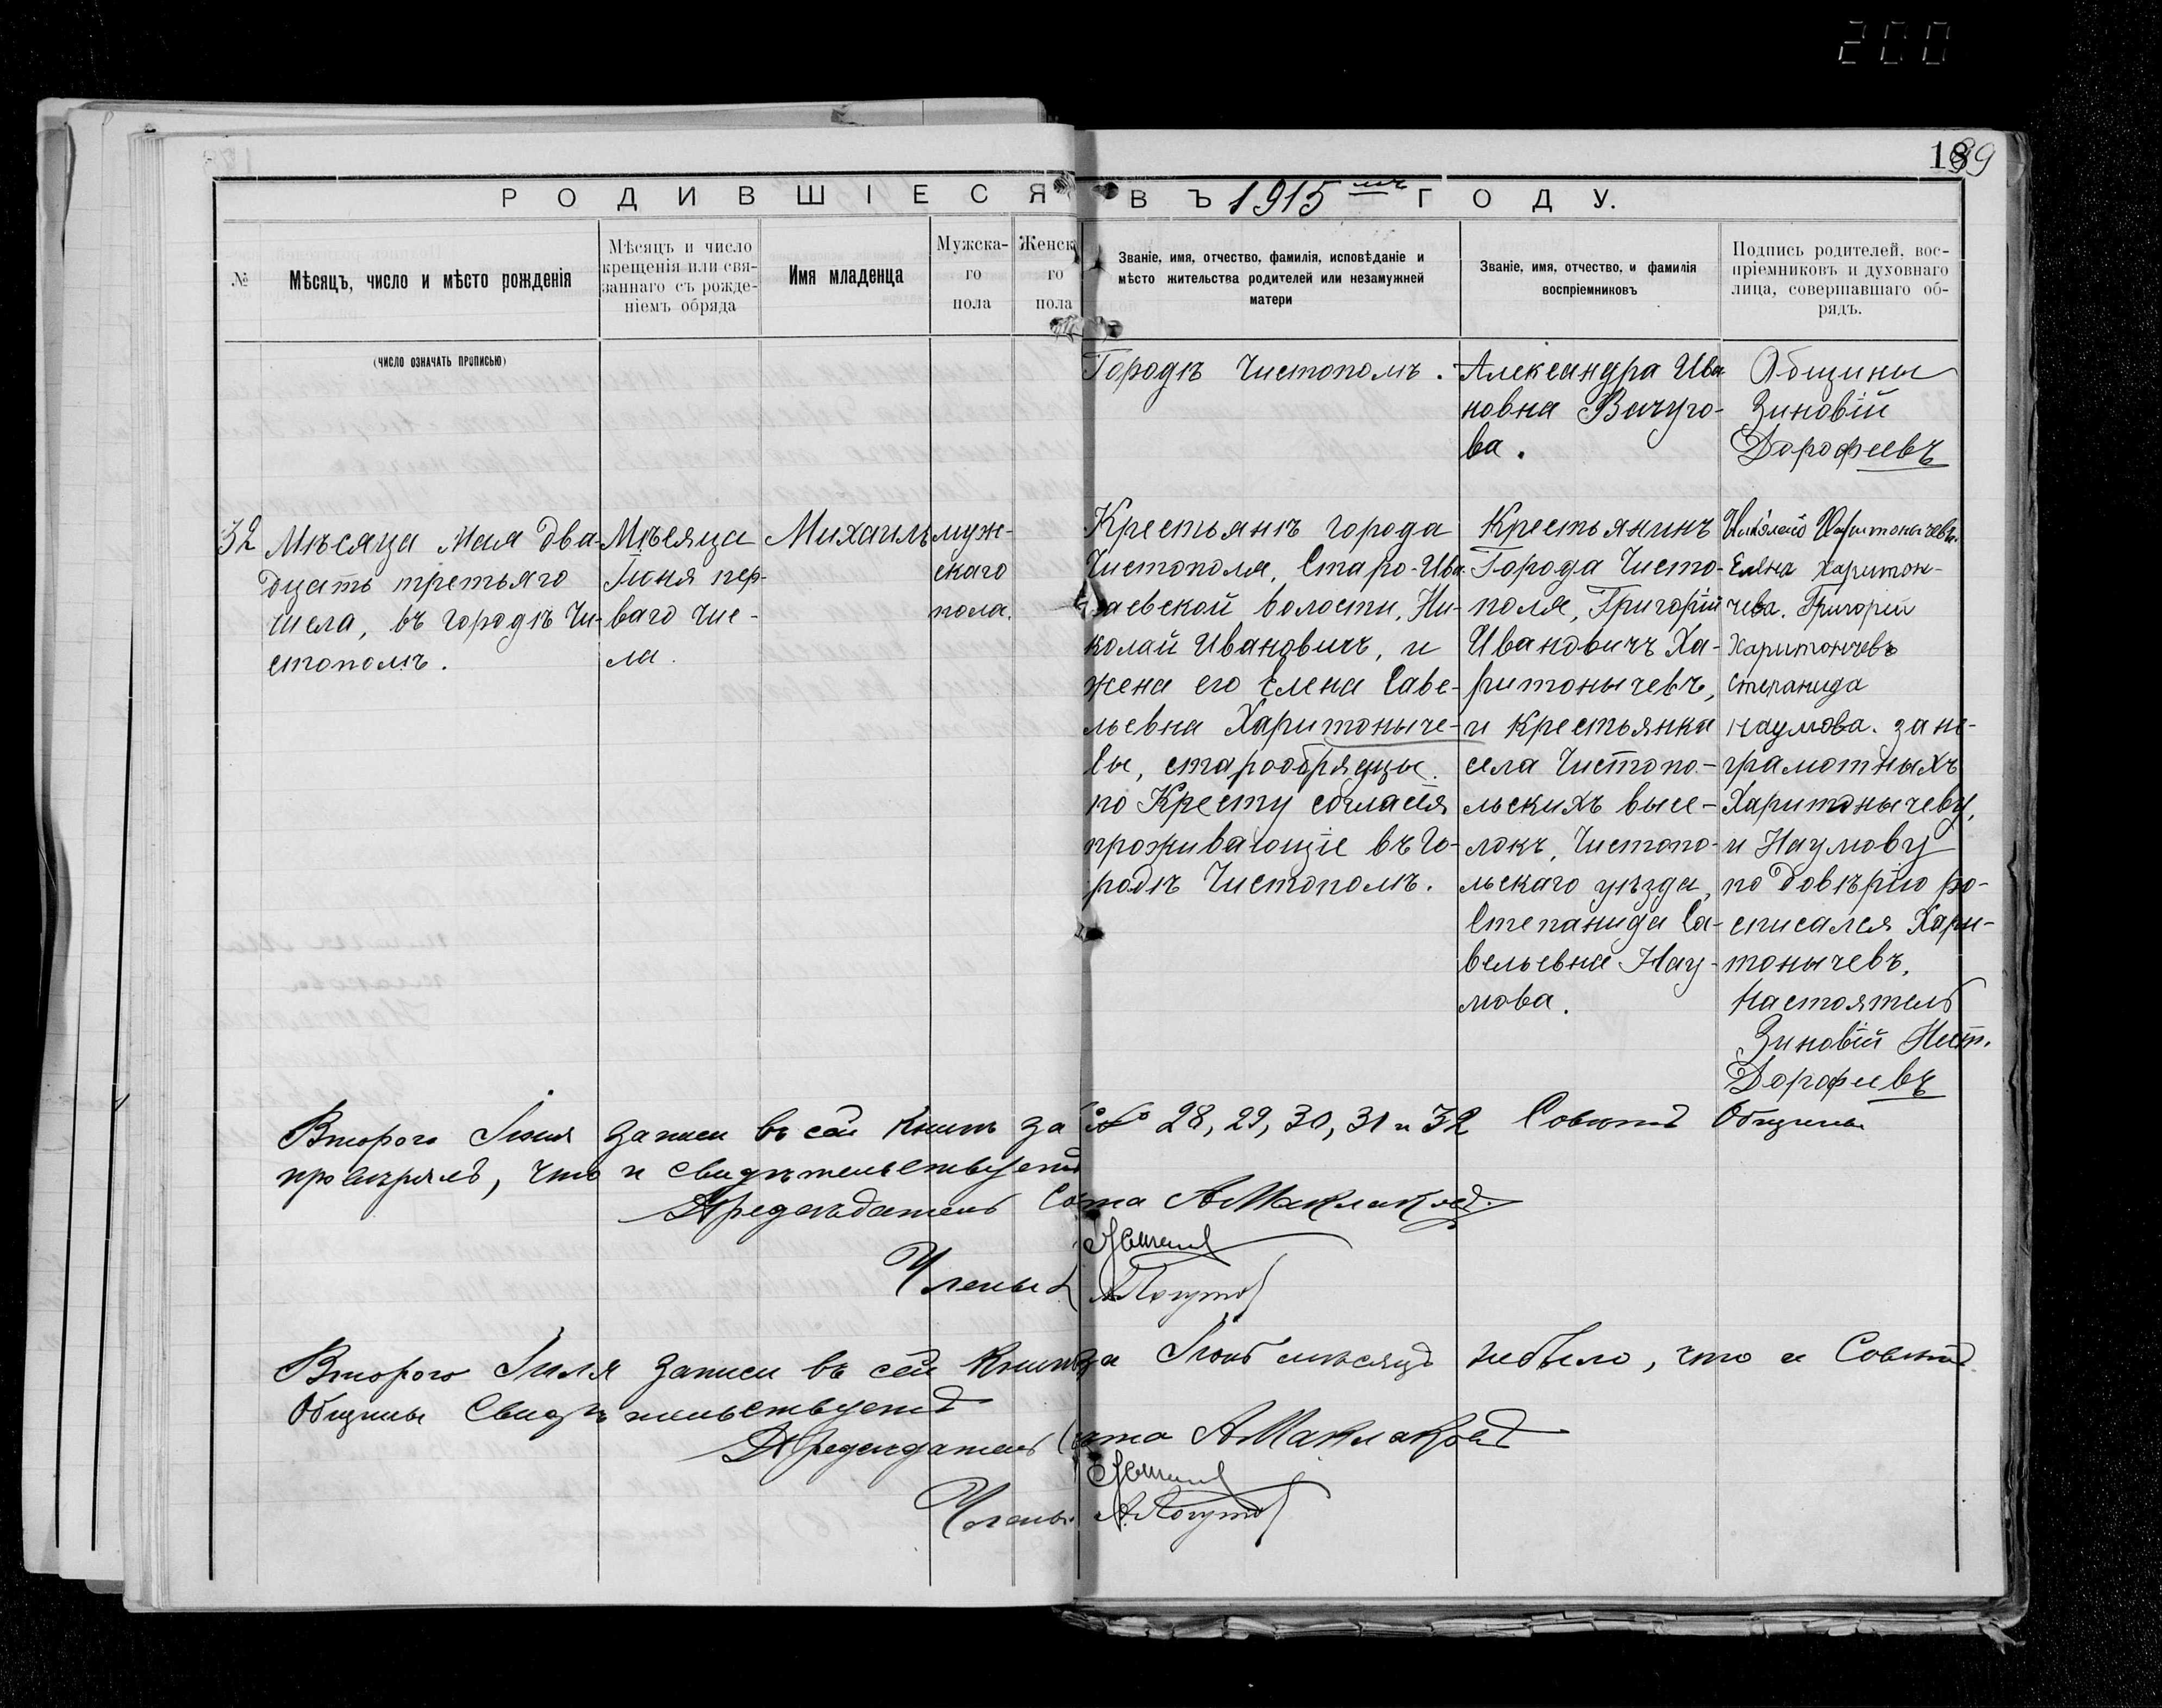 200
189
РОДИВШІЕСЯ ВЪ 1915мъ ГОДУ.
№
Мѣсяцъ, число и мѣсто рожденія
Мѣсяцъ и число
крещенія или свя-
заннаго съ рожде-
ніемъ обряда
Имя младенца
Мужска-
го
пола
Женск
го
пола
Званіе, имя, отчество, фамилія, исповѣданіе и
мѣсто жительства родителей или незамужней
матери
Званіе, имя, отчество, и фамилія
воспріемниковъ
Подпись родителей, вос-
пріемниковъ и духовнаго
лица, совершавшаго об-
рядъ.
(ЧИСЛО ОЗНАЧАТЬ ПРОПИСЬЮ)
Городѣ Чистополѣ.
Александра Ива
новна Вачуго-
ва.
Общины
Зиновій
Дорофеевъ
32
Мѣсяца Мая два-
дцать третьяго
числа, въ городѣ Чи-
стополѣ.
Мѣсяца
Іюня пер-
ваго чис-
ла.
Михаилъ
муж-
скаго
пола.
Крестьянѣ города
Чистополя, Старо-Ива
заевской волости, Ни-
колай Ивановичъ, и
жена его Елена Саве-
льевна Харитоныче-
вы, старообрядцы
по Кресту согласія
проживающіе въ го-
родѣ Чистополѣ.
Крестьянинъ
Города Чисто-
поля, Григорій
Ивановичъ Ха-
ритонычевъ,
и крестьянка
села Чистопо-
льскихъ высе-
локъ, Чистопо-
льскаго уѣзда,
Степанида Са-
вельевна Нау-
мова.
Николай Харитонычевъ.
Елена Харитон-
чева. Григорий
Харитончевъ
Степанида
Наумова. за не-
грамотныхъ
Харитонычеву,
и Наумову
по довѣрію ро-
списался Хари-
тонычевъ.
Настоятель
Зиновій Нест.
Дорофеевъ
Второго Іюня записи въ сей книгѣ за №№ 28, 29, 30, 31 и 32 Совѣтъ Общины
провѣрялъ, что и свидѣтельствуетъ
Предсѣдатель Со та А Маклаковъ.
Члены
Второго Іюля записи въ сей книгѣ за Іюнь мѣсяцъ небыло, что и Совѣтъ
Общины Свидѣтельствуетъ
Предсѣдатель та А Маклаковъ
Члены